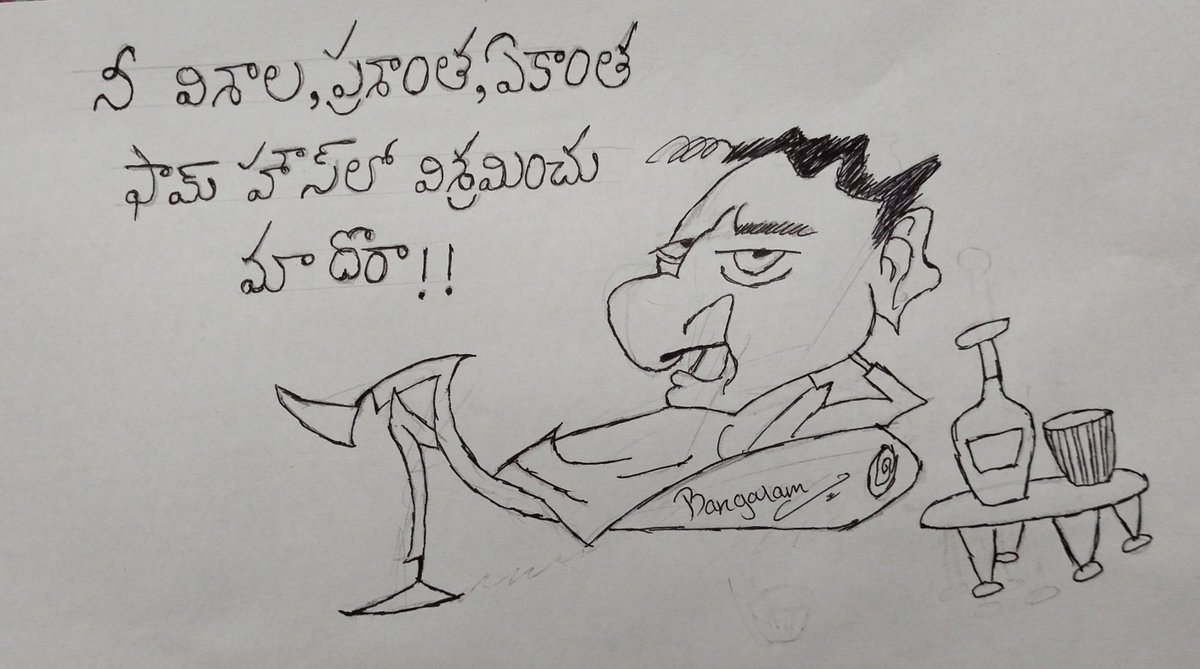 నీ విశాల, ప్రశాంత, ఏకాంత
ఫామ్ హౌస్‌లో విశ్రమించు
మా దొరా!!
Bangaram